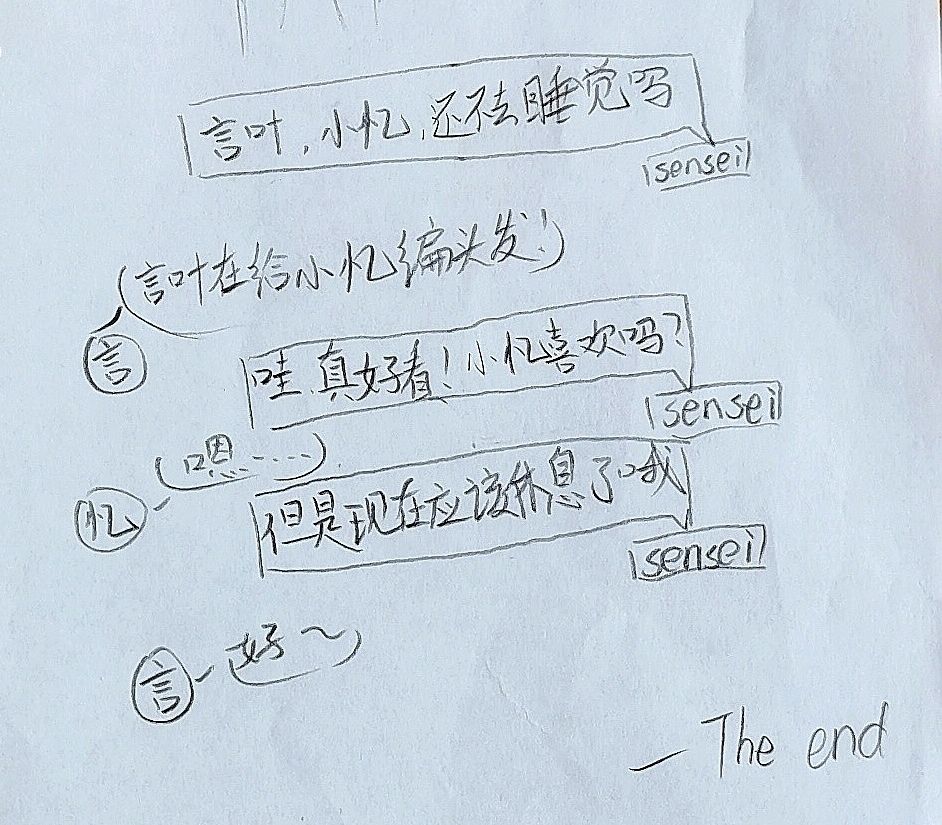 言叶，小忆，还不去睡觉吗
sensei
言叶在给小忆编头发！
言
哇，真好看！小忆喜欢吗？
sensei
嗯……
忆
但是现在应该休息了哦
sensei
言 好～
— The end